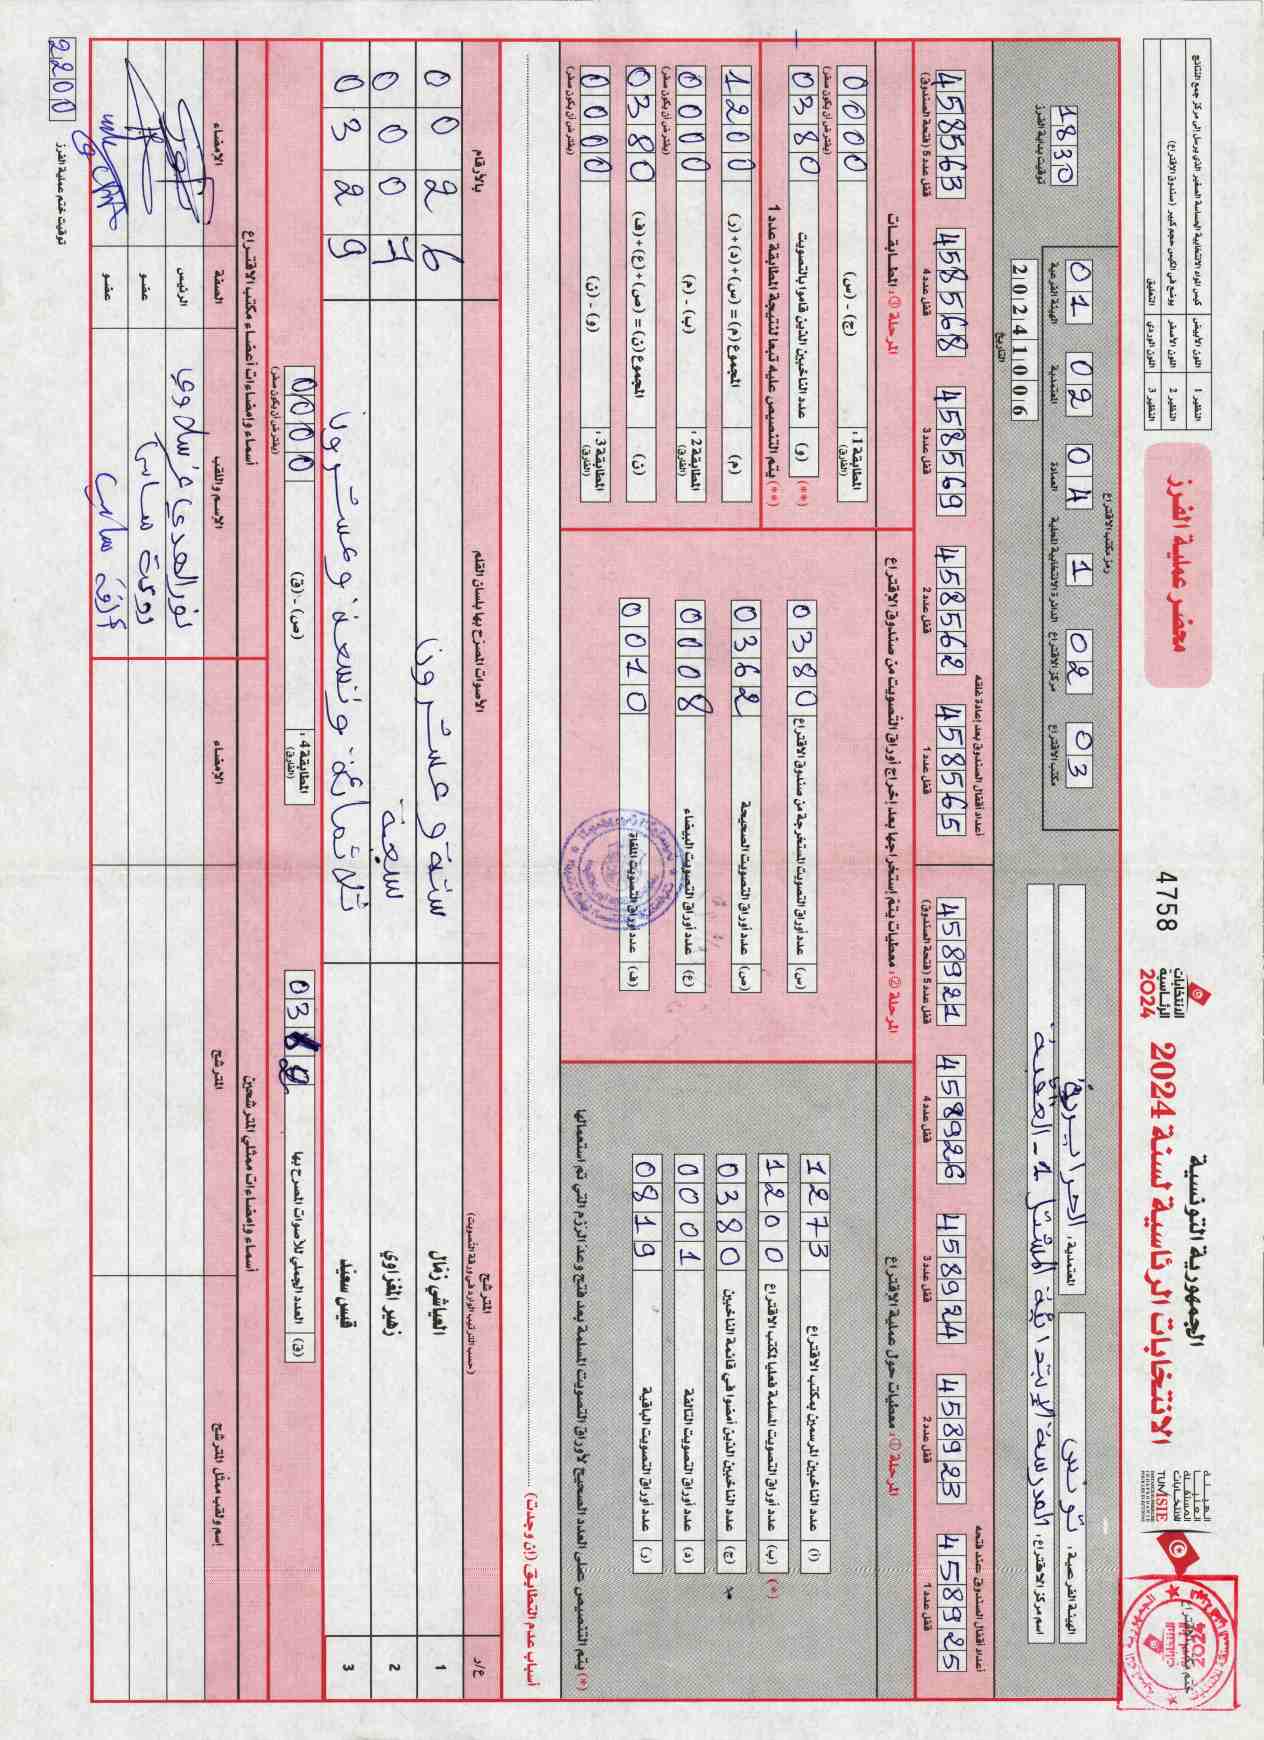 الجمهورية التونسية
الانتخابات الرئاسية لسنة 2024
الانتخابات الرئاسية 2024
4758
محضر عملية الفرز
TUNISIE
النظير 1 اللون الأبيض كيس المواد الانتخابية الحساسة الصغير الذي يرسل إلى مركز جمع النتائج
النظير 2 اللون الأصفر يوضع في الكيس حجم كبير (صندوق الاقتراع)
النظير 3 اللون الوردي التعليق
الهيئة الفرعية: تونس
المعتمدية: الحرايرية
اسم مركز الاقتراع: المدرسة الابتدائية المشتل 1 - العقبة
رمز مكتب الاقتراع
01 الهيئة الفرعية
02 المعتمدية
04 العمادة
1 الدائرة الانتخابية المحلية
02 مركز الاقتراع
03 مكتب الاقتراع
التاريخ 20241006
1830 توقيت بداية الفرز
أعداد أقفال الصندوق عند فتحه
458925 قفل عدد 1
458923 قفل عدد 2
458924 قفل عدد 3
458926 قفل عدد 4
458921 قفل عدد 5 (فتحة الصندوق)
أعداد أقفال الصندوق بعد إعادة غلقه
458565 قفل عدد 1
458562 قفل عدد 2
458569 قفل عدد 3
458568 قفل عدد 4
458563 قفل عدد 5 (فتحة الصندوق)
المرحلة ①: معطيات حول عملية الاقتراع
(أ) عدد الناخبين المرسمين بمكتب الاقتراع 1273
(ب) عدد أوراق التصويت المسلمة فعليا لمكتب الاقتراع 1200 (*)
(ج) عدد الناخبين الذين أمضوا في قائمة الناخبين 0380
(د) عدد أوراق التصويت التالفة 0001
(ر) عدد أوراق التصويت الباقية 0819
(*) يتم التنصيص على العدد الصحيح لأوراق التصويت المسلمة بعد فتح وعد الرزم التي تم استعمالها
المرحلة ②: معطيات يتم إستخراجها بعد إخراج أوراق التصويت من صندوق الاقتراع
(س) عدد أوراق التصويت المستخرجة من صندوق الاقتراع 0380
(ص) عدد أوراق التصويت الصحيحة 0362
(ع) عدد أوراق التصويت البيضاء 0008
(ف) عدد أوراق التصويت الملغاة 0010
المرحلة ③: المطابقات
المطابقة 1: (الفارق) (ج) - (س) 0000 (يفترض أن يكون صفر)
(**) (و) عدد الناخبين الذين قاموا بالتصويت 0380
(**) يتم التنصيص عليه تبعا لنتيجة المطابقة عدد 1
(م) المجموع (م) = (س)+(د)+(ر) 1200
المطابقة 2: (الفارق) (ب) - (م) 0000 (يفترض أن يكون صفر)
(ن) المجموع (ن) = (ص)+(ع)+(ف) 0380
المطابقة 3: (الفارق) (و) - (ن) 0000 (يفترض أن يكون صفر)
أسباب عدم التطابق (إن وجدت)
ع/ر المترشح (حسب الترتيب الوارد في ورقة التصويت) الأصوات المصرح بها بلسان القلم بالأرقام
1 العياشي زمال ستة وعشرون 0026
2 زهير المغزاوي سبعة 0007
3 قيس سعيد ثلاثمائة وتسعة وعشرون 0329
(ق) العدد الجملي للأصوات المصرح بها
المطابقة 4: (الفارق) (ص) - (ق) 0000 (يفترض أن يكون صفر)
أسماء وإمضاءات ممثلي المترشحين
إسم ولقب ممثل المترشح المترشح الإمضاء
أسماء وإمضاءات أعضاء مكتب الاقتراع
الإسم واللقب الصفة الإمضاء
نور الهدى الرئيس
ساسي عضو
عضو
2200 توقيت ختم عملية الفرز